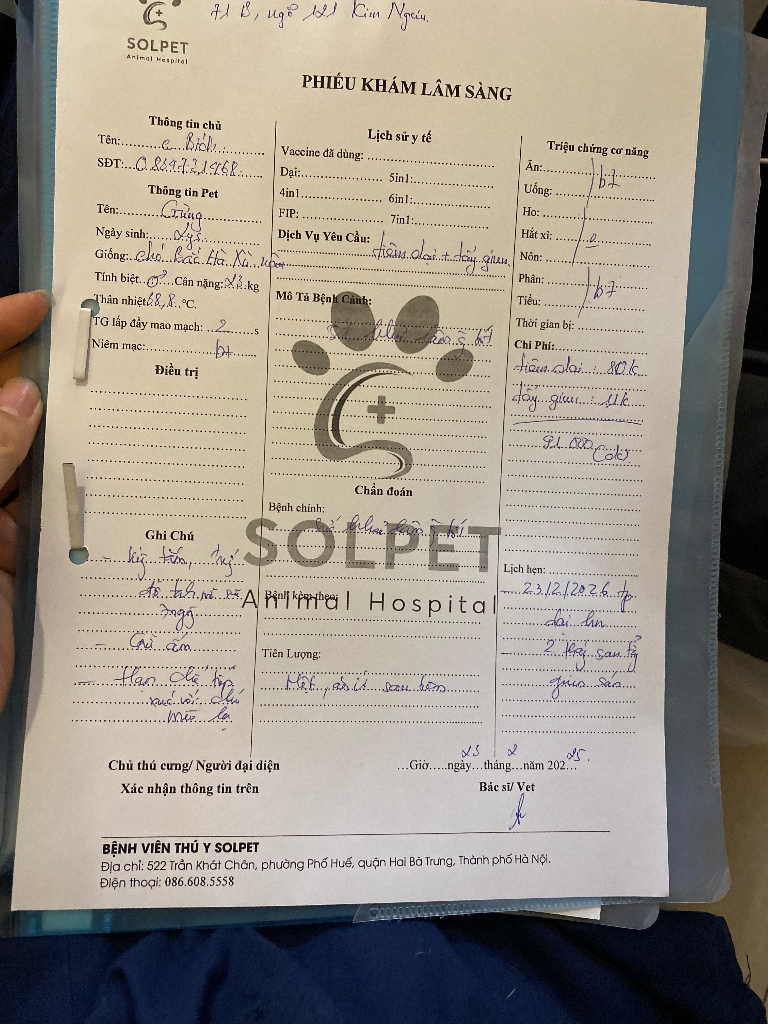 71 B, ngõ 121 Kim Ngưu.
SOLPET
Animal Hospital
PHIẾU KHÁM LÂM SÀNG
Thông tin chủ
Tên: c Bích
SĐT: 0839731968
Thông tin Pet
Tên:
Ngày sinh:
Giống: chó Bắc Hà Xù
Tính biệt ♂ Cân nặng: 23 kg
Thân nhiệt 38,8 °C.
TG lấp đầy mao mạch: 2 s
Niêm mạc: bt
Điều trị
Ghi Chú
- tắm,
7ng
- Giữ ấm
- Hạn chế tiếp
xúc với chó
mèo lạ
Lịch sử y tế
Vaccine đã dùng:
Dại: 5in1:
4in1 6in1:
FIP: 7in1:
Dịch Vụ Yêu Cầu: tiêm dại + tẩy giun
Mô Tả Bệnh Cảnh:
SOLPET
Animal Hospital
Chẩn đoán
Bệnh chính:
Bệnh kèm theo:
Tiên Lượng:
Mệt, ăn ít sau tiêm
Triệu chứng cơ năng
Ăn:
Uống: bt
Ho:
Hắt xì:
Nôn:
Phân: bt
Tiểu:
Thời gian bị:
Chi Phí:
tiêm dại: 80k
tẩy giun: 11k
91.000 (ck)
Lịch hẹn:
- 23/2/2026
dại
- 2 sau tẩy
giun sán
Chủ thú cưng/ Người đại diện
Xác nhận thông tin trên
...Giờ.....ngày 23 tháng 2 năm 2025.
Bác sĩ/ Vet
BỆNH VIỆN THÚ Y SOLPET
Địa chỉ: 522 Trần Khát Chân, phường Phố Huế, quận Hai Bà Trưng, Thành phố Hà Nội.
Điện thoại: 086.608.5558